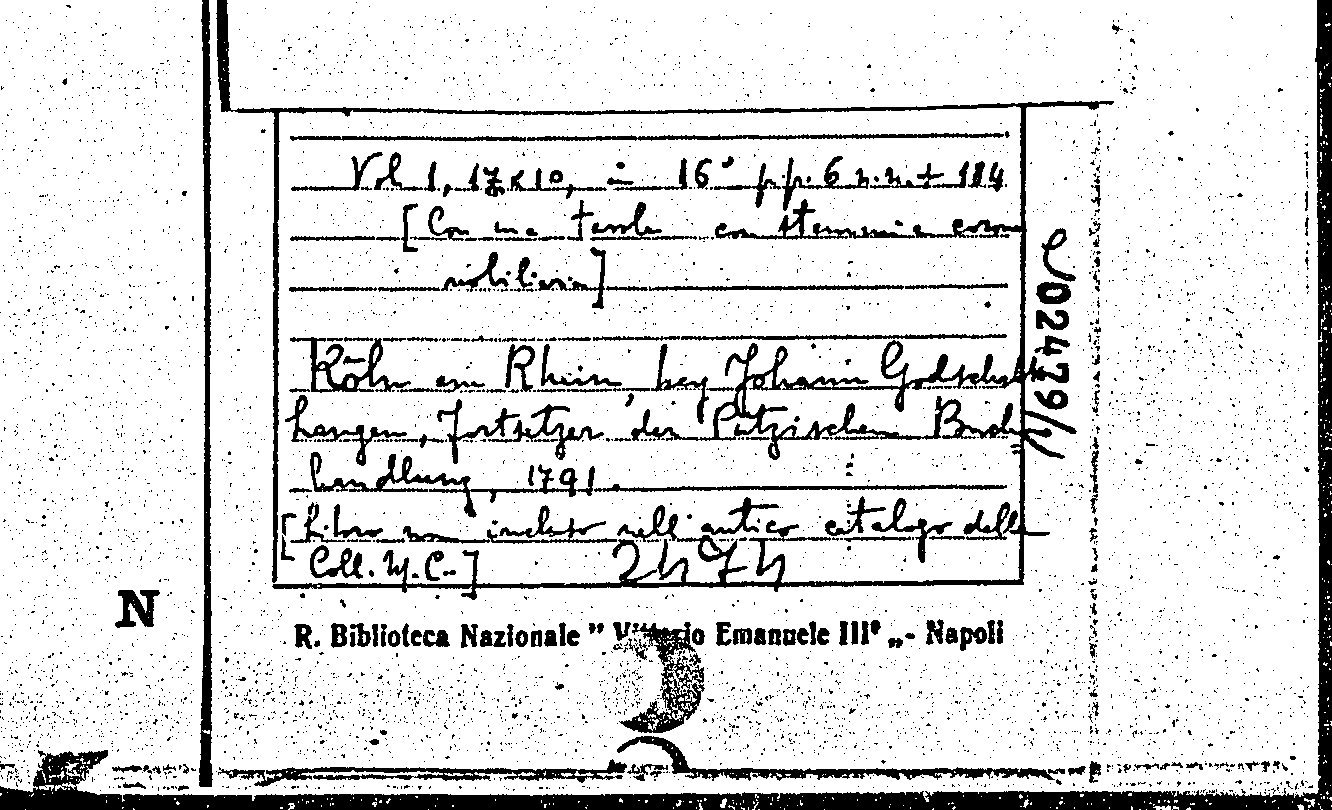 Vol 1, 17 x 10, in 16° pp. 6 n.n. + 184
[Con una tavola con stemmi e corone
nobiliari]
Köln am Rhein, bey Johann Godschalk
Langen, Fortsetzer der Pützischen Buch=
handlung, 1791.
[Libro non incluso nell'antico catalogo della
Coll. M. C.]
R. Biblioteca Nazionale " Vittorio Emanuele III° „- Napoli
N
02479/1